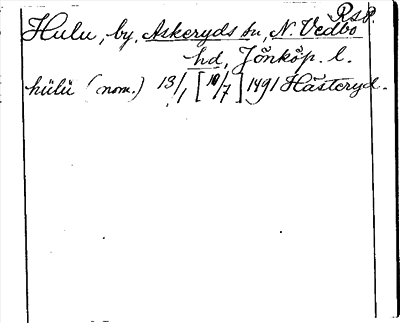 RsP.
Hulu, by, Askeryds sn, N. Vedbo
hd, Jönköp. l.
hülü (nom.) 13/1 [10/7] 1491 Hästeryd.